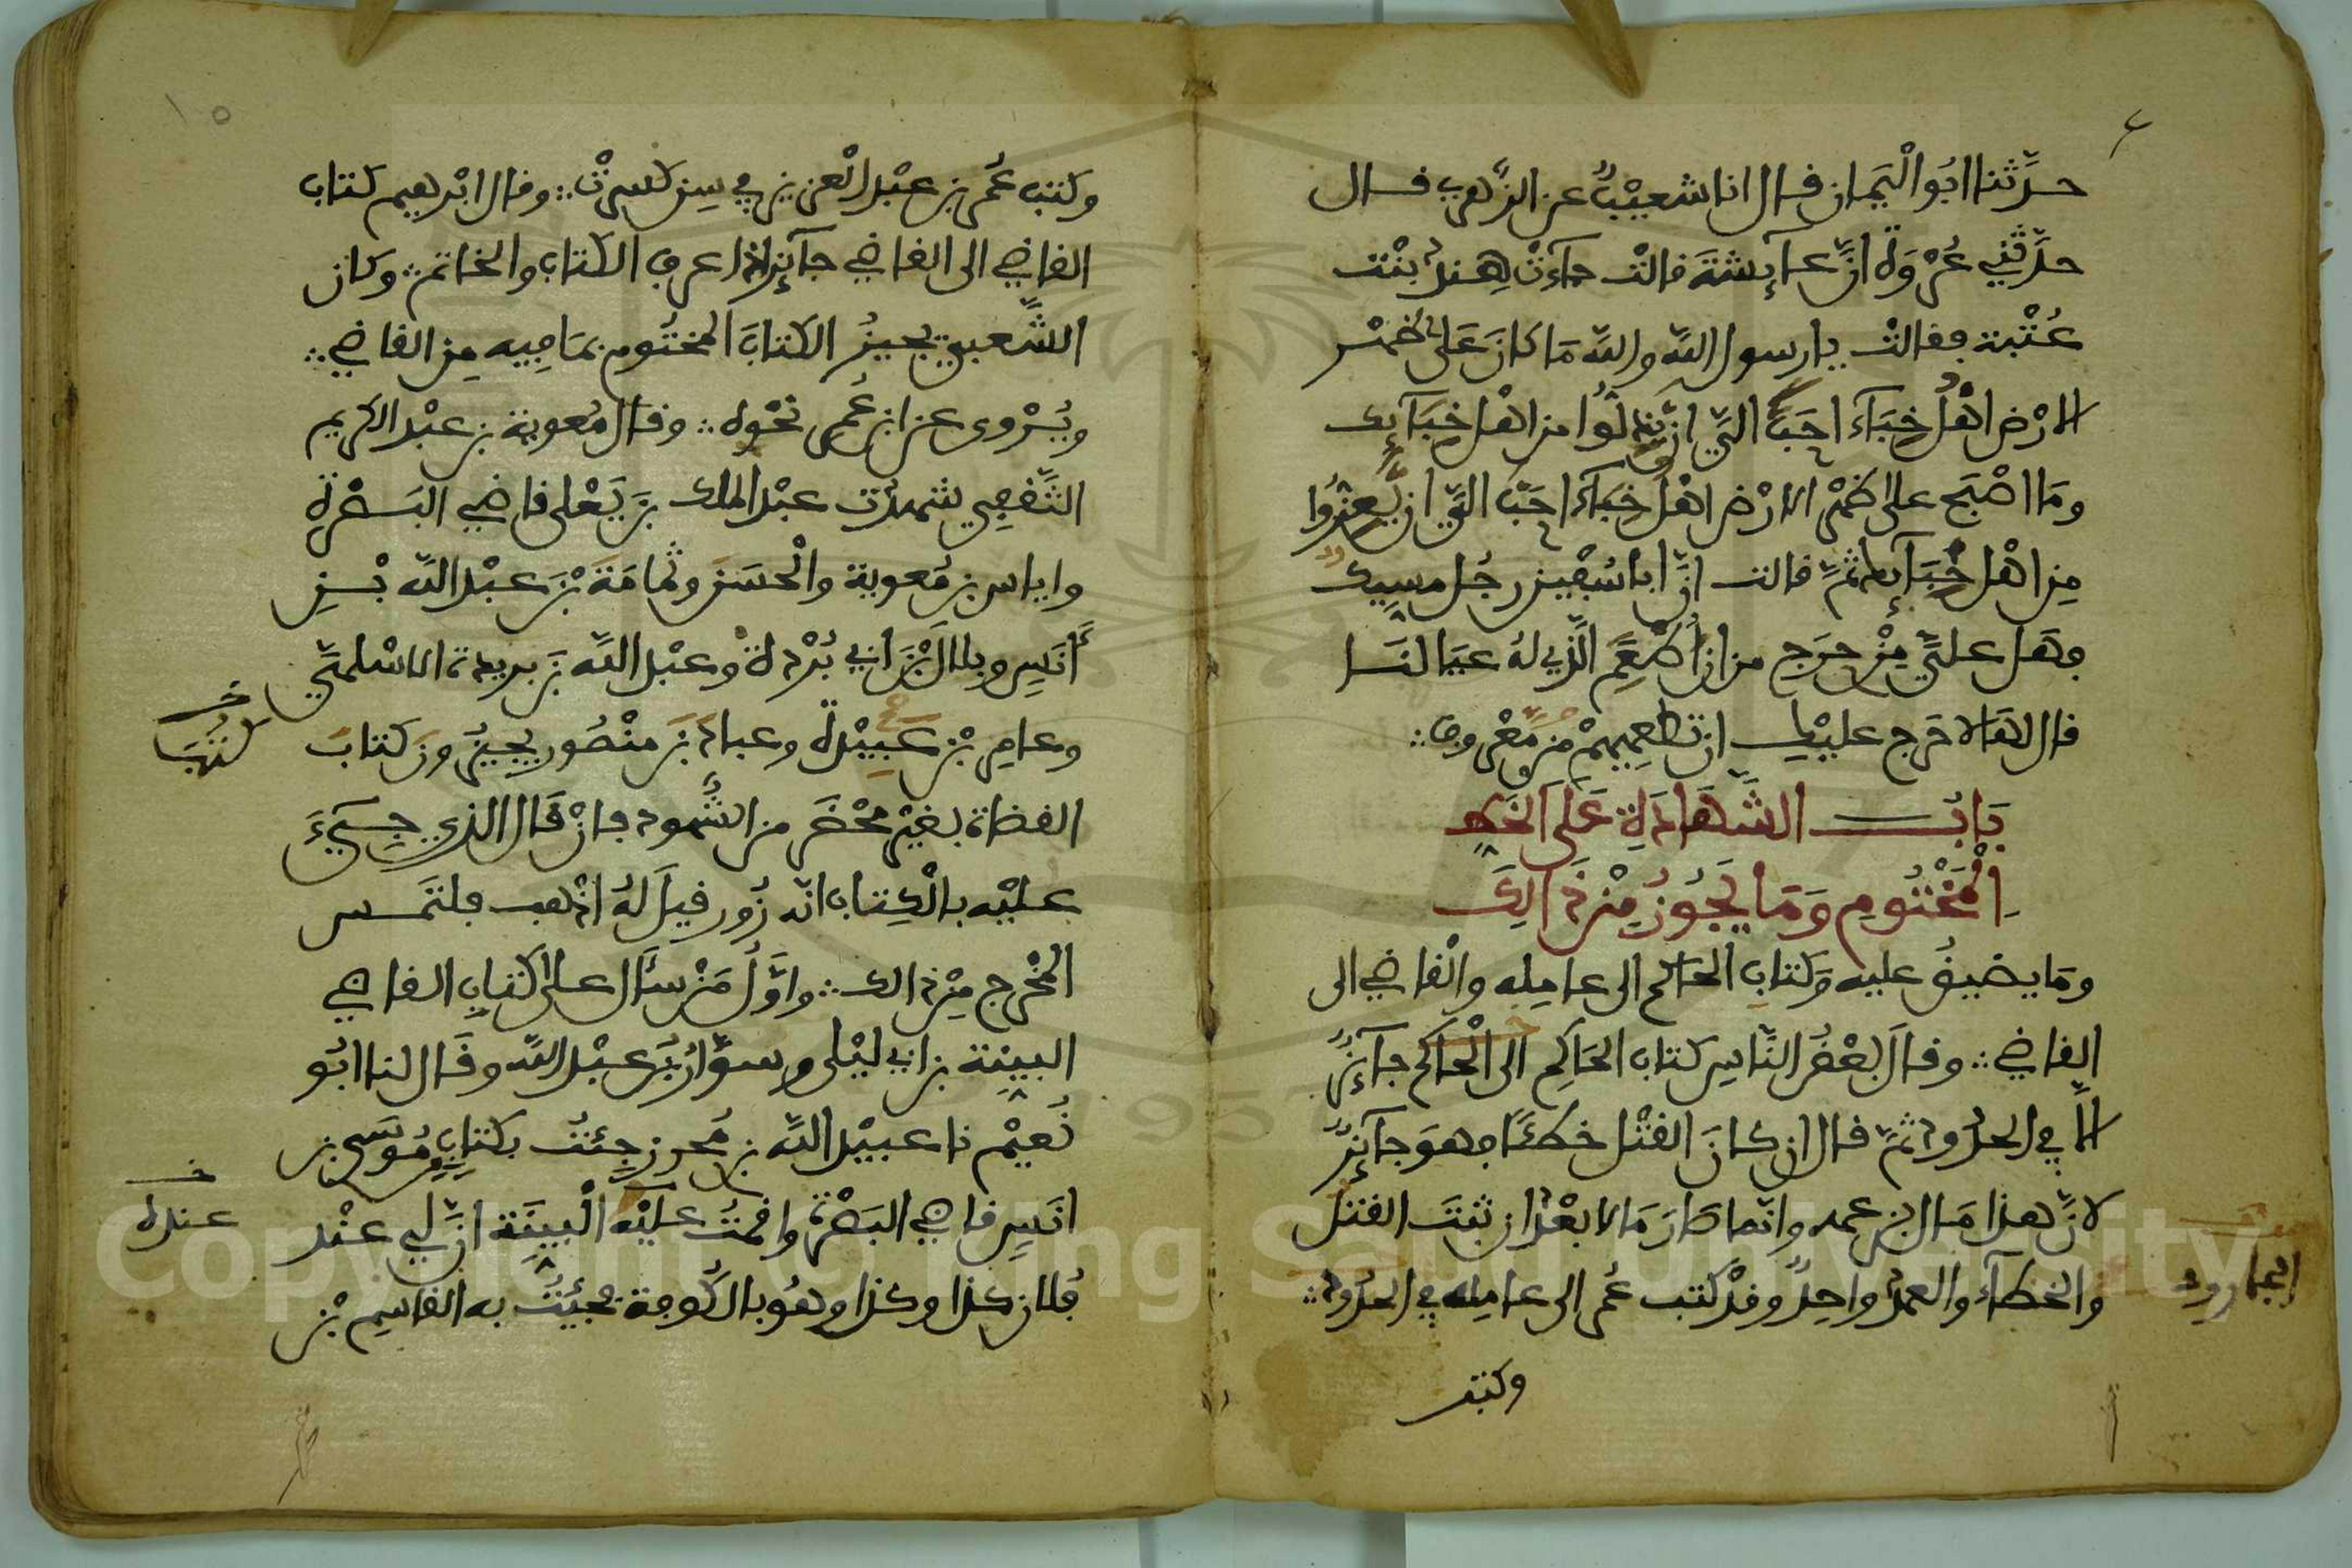 حدّثنا ابُو الْيَمان قال انا شعيْبٌ عن الزّهري قال
حدّثني عُرْوَة انّ عآيشةَ قالتْ جآءتْ هِندُ بنْت
عُتْبة فقالتْ يا رسول اللّه واللّه مَا كانَ على ظهْر
الارْض اهْلُ خِبَآء احَبَّ اليّ ان يذلّوا من اهْل خِبَآيك
ومَا اصْبَح على ظهْر الارْض اهْلُ خِبَآء احَبّ اليّ ان يعِزّوا
مِن اهْل خِبَآيك ثمّ قالت انّ ابا سُفين رجُل مسِّيك
فهَل عليّ مِنْ حرَج من ان اُطْعِمَ الّذي لهُ عيَالنَا
قال لهَا لا حَرج عليْك ان تطعِميهمْ من مّعْروف
بَابُ الشَّهَادَةِ عَلَى الخَطِّ
الْمَخْتُومِ وَمَا يَجُوزُ مِنْ ذَالِكَ
ومَا يضيقُ عليه وَكتابِ الحَاكم الى عامِله والْقاضي الى
القاضي وقال بعْضُ النّاسِ كتاب الحَاكِم الى الْحاكم جآيزٌ
الاّ في الحدُود ثمّ قال ان كانَ القتْل خطئًا فهوَ جآيزٌ
لانّ هذا مَال بزعمه وانّما صَارَ مَالا بعْد ان ثبتَ القتل
والخطآء والعمدُ واحِدٌ وقدْ كتب عُمر الى عامِله في الحدُود
الجارود
وكتب
١٥
وكتب عُمر بن عبْد الْعزيز في سِنّ كسرتْ وقال ابْرهيم كتاب
القاضي الى القاضي جآيز اذا عرف الكتاب والخاتم وكان
الشّعبيّ يجيزُ الكتابَ المختُوم بمَا فِيه مِن القاضي
ويُرْوى عن ابن عُمر نحْوه وقال مُعوية بن عبْد الكريم
الثّقفِي شهدْت عبْد الملك بنَ يَعْلى قاضي البَصْرة
واياس بن مُعوية والْحسَن وثُمامَةَ بْنَ عبْد اللّه بْنِ
أنَسٍ وبلال بْنَ ابي بُرْدة وعبْد اللّه بنَ بريدة الاسْلميّ
وعامِر بْنَ عَبِيْدة وعباد بنَ منْصُور يجِيزُون كتابَ
كتُبَ
القضاة بغيْر محْضَر من الشُّهود فانْ قال الذي جِيءَ
عليْه بالْكِتاب انّه زُور قيلَ لهُ اذْهب فلتَمس
المخْرج مِنْ ذالك واوَّلُ مَنْ سألَ على كتابِ القاضي
البيِّنة بن ابي ليْلى وسوّارُ بْنُ عبْد اللّه وقَال لنا ابُو
نُعيْم نا عبيْد اللّه بن مُحرز جِئتُ بكتابٍ من مُوسَى بن
انَسٍ قاضي البَصْرة واقمْتُ عليْه الْبيِّنَة انّ لي عنْد
عنده
فُلان كذا وكذا وهُو بالكُوفة فجِئتُ به القاسِم بْن